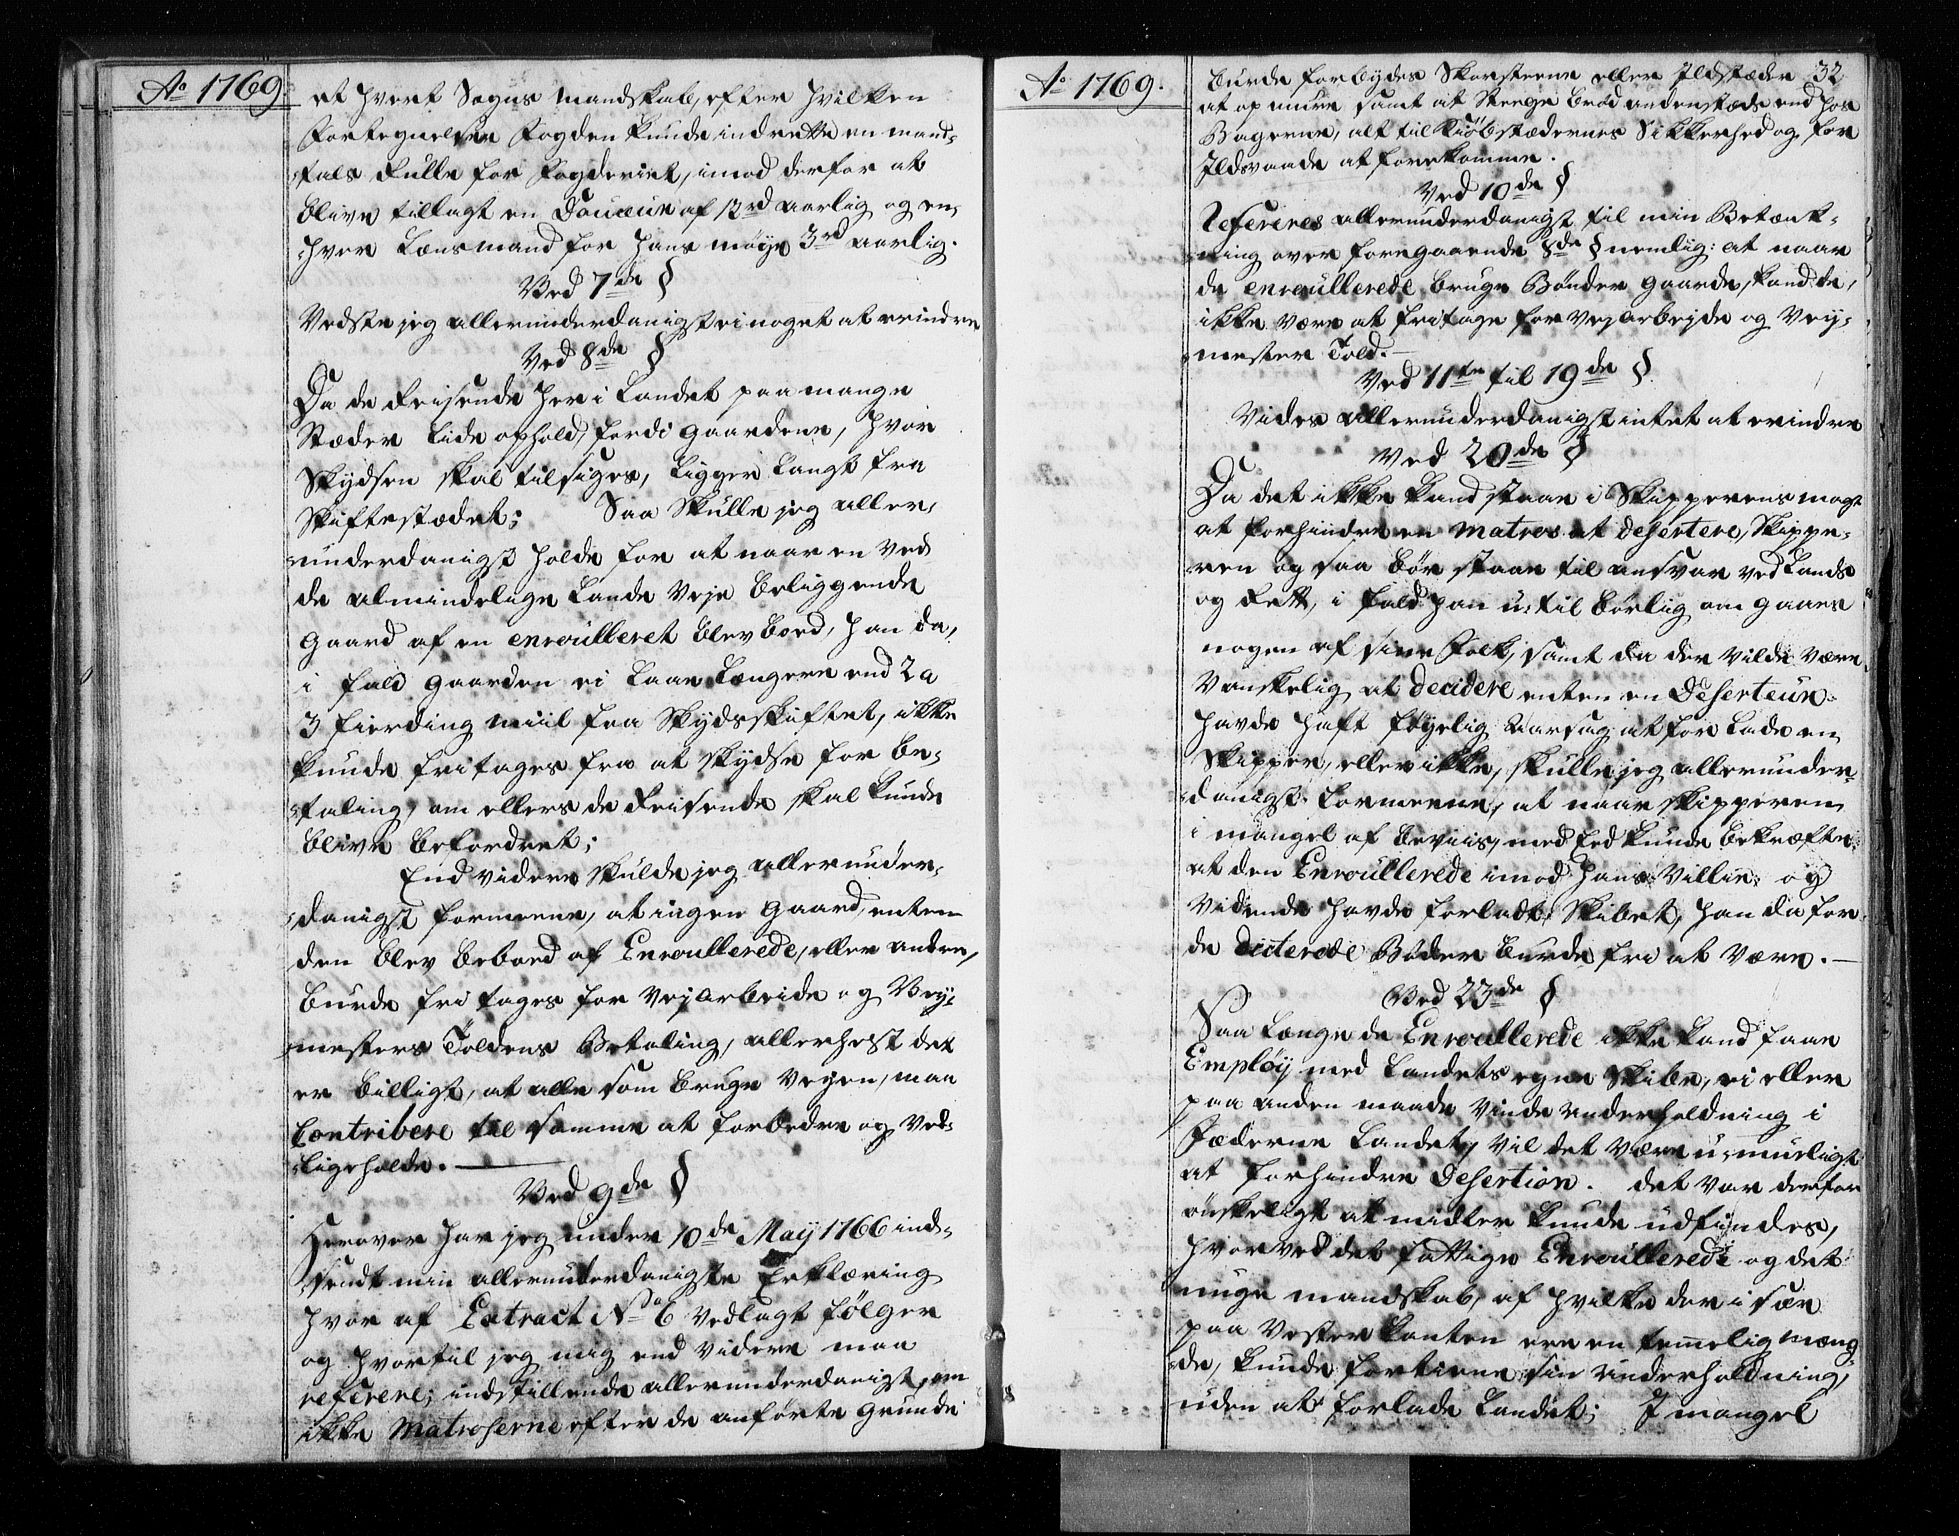 Ao 1769.
et hvert Sogns Mandskab, efter hvilken
Fortegnelsen Fogden kunde indrette en mand-
tals Rulle for Fogderiet, imod derfor at
blive tillagt en Douceur af 12rd aarlig og en-
hver Lænsmand for hans møye 3rd aarlig.
Ved 7de §
Vedste jeg allerunderdanigst ei noget at erindre
Ved 8de §
Da de Reisende her i Landet paa mange
Stæder lide ophold, fordi Gaardene, hvor
Skydsen skal tilsiges, ligger langt fra
Skiftestædet; Saa skulle jeg aller-
underdanigst holde for at naar en ved
de almindelige Lande Veje beliggende
Gaard af en enroulleret blev boed, han da,
i fald Gaarden ei laae længere end 2 a
3 fierding miil fra Skydsskiftet, ikke
kunde fritages fra at skydse for be-
taling, om ellers de Reisende skal kunde
blive befordret;
End videre skulde jeg allerunder-
danigst formeene, at ingen Gaard, enten
den blev beboed af Enroullerede, eller andre,
burde fritages for Vejarbeide og Vey-
mesters Toldens Betaling, allerhelst det
er billigt, at alle som bruge Veyen, maa
Contribere til samme at forbedre og ved-
ligeholde.
Ved 9de §
Herover har jeg under 10de May 1766 ind-
sendt min allerunderdanigste Erklæring
hvor af Extract No 6 vedlagt følger
og hvortil jeg mig end videre maa
referere; indstillende allerunderdanigst, om
ikke Matroserne efter de anførte Grunde
Ao 1769.
32
burde forbydes Skorsteene eller Ildstæder
at op mure samt at Steege brød andenstæds end hos
Bagerne, alt til Kiøbstædernes Sikkerhed og for
Ildsvaade at forekomme.
Ved 10de §
Refereres allerunderdanigst til min Betænk-
ning over foregaaende 8de § nemlig: at naar
de enroullerede bruge Bønder Gaarde, kand de,
ikke være at fritage for Vejarbejde og Vey-
mester Told.
Ved 11te til 19de §
Vides allerunderdanigst intet at erindre
Ved 20de §
Da det ikke kand staae i Skipperens magt
at forhindre en Matros at desertere, Skippe-
ren og saa bør staae til ansvar ved Lands
og Rett, i fald han u-tilbørlig om gaaes
nogen af sine Folk, samt da der vilde være
Vanskelig at decidere enten en Deserteur
havde haft føyelig Aarsag at forlade en
Skipper, eller ikke, skulle jeg allerunder-
danigst formeene, at naar skipperen
i mangel af beviis, med Eed kunde bekræfte
at den Enroullerede imod hans Villie og
Vidende havde forladt Skibet, han da for
de dicterede Bøder burde fri at være.
Ved 23de §
Saa længe de Enroullerede ikke kand faae
Employ med Landets egne Skibe, ei eller
paa anden maade vinde underholdning i
Fæderne Landet, vil det være u-mueligt
at forhindre Desertion. det var derfor
ønskeligt at midler kunde udfindes,
hvorved det fattige Enroullerede og det
unge mandskab, af hvilke der i sær
paa Vester kanten ere en temmelig mæng-
de, kunde fortiene sin underholdning,
uden at forlade Landet; I mangel